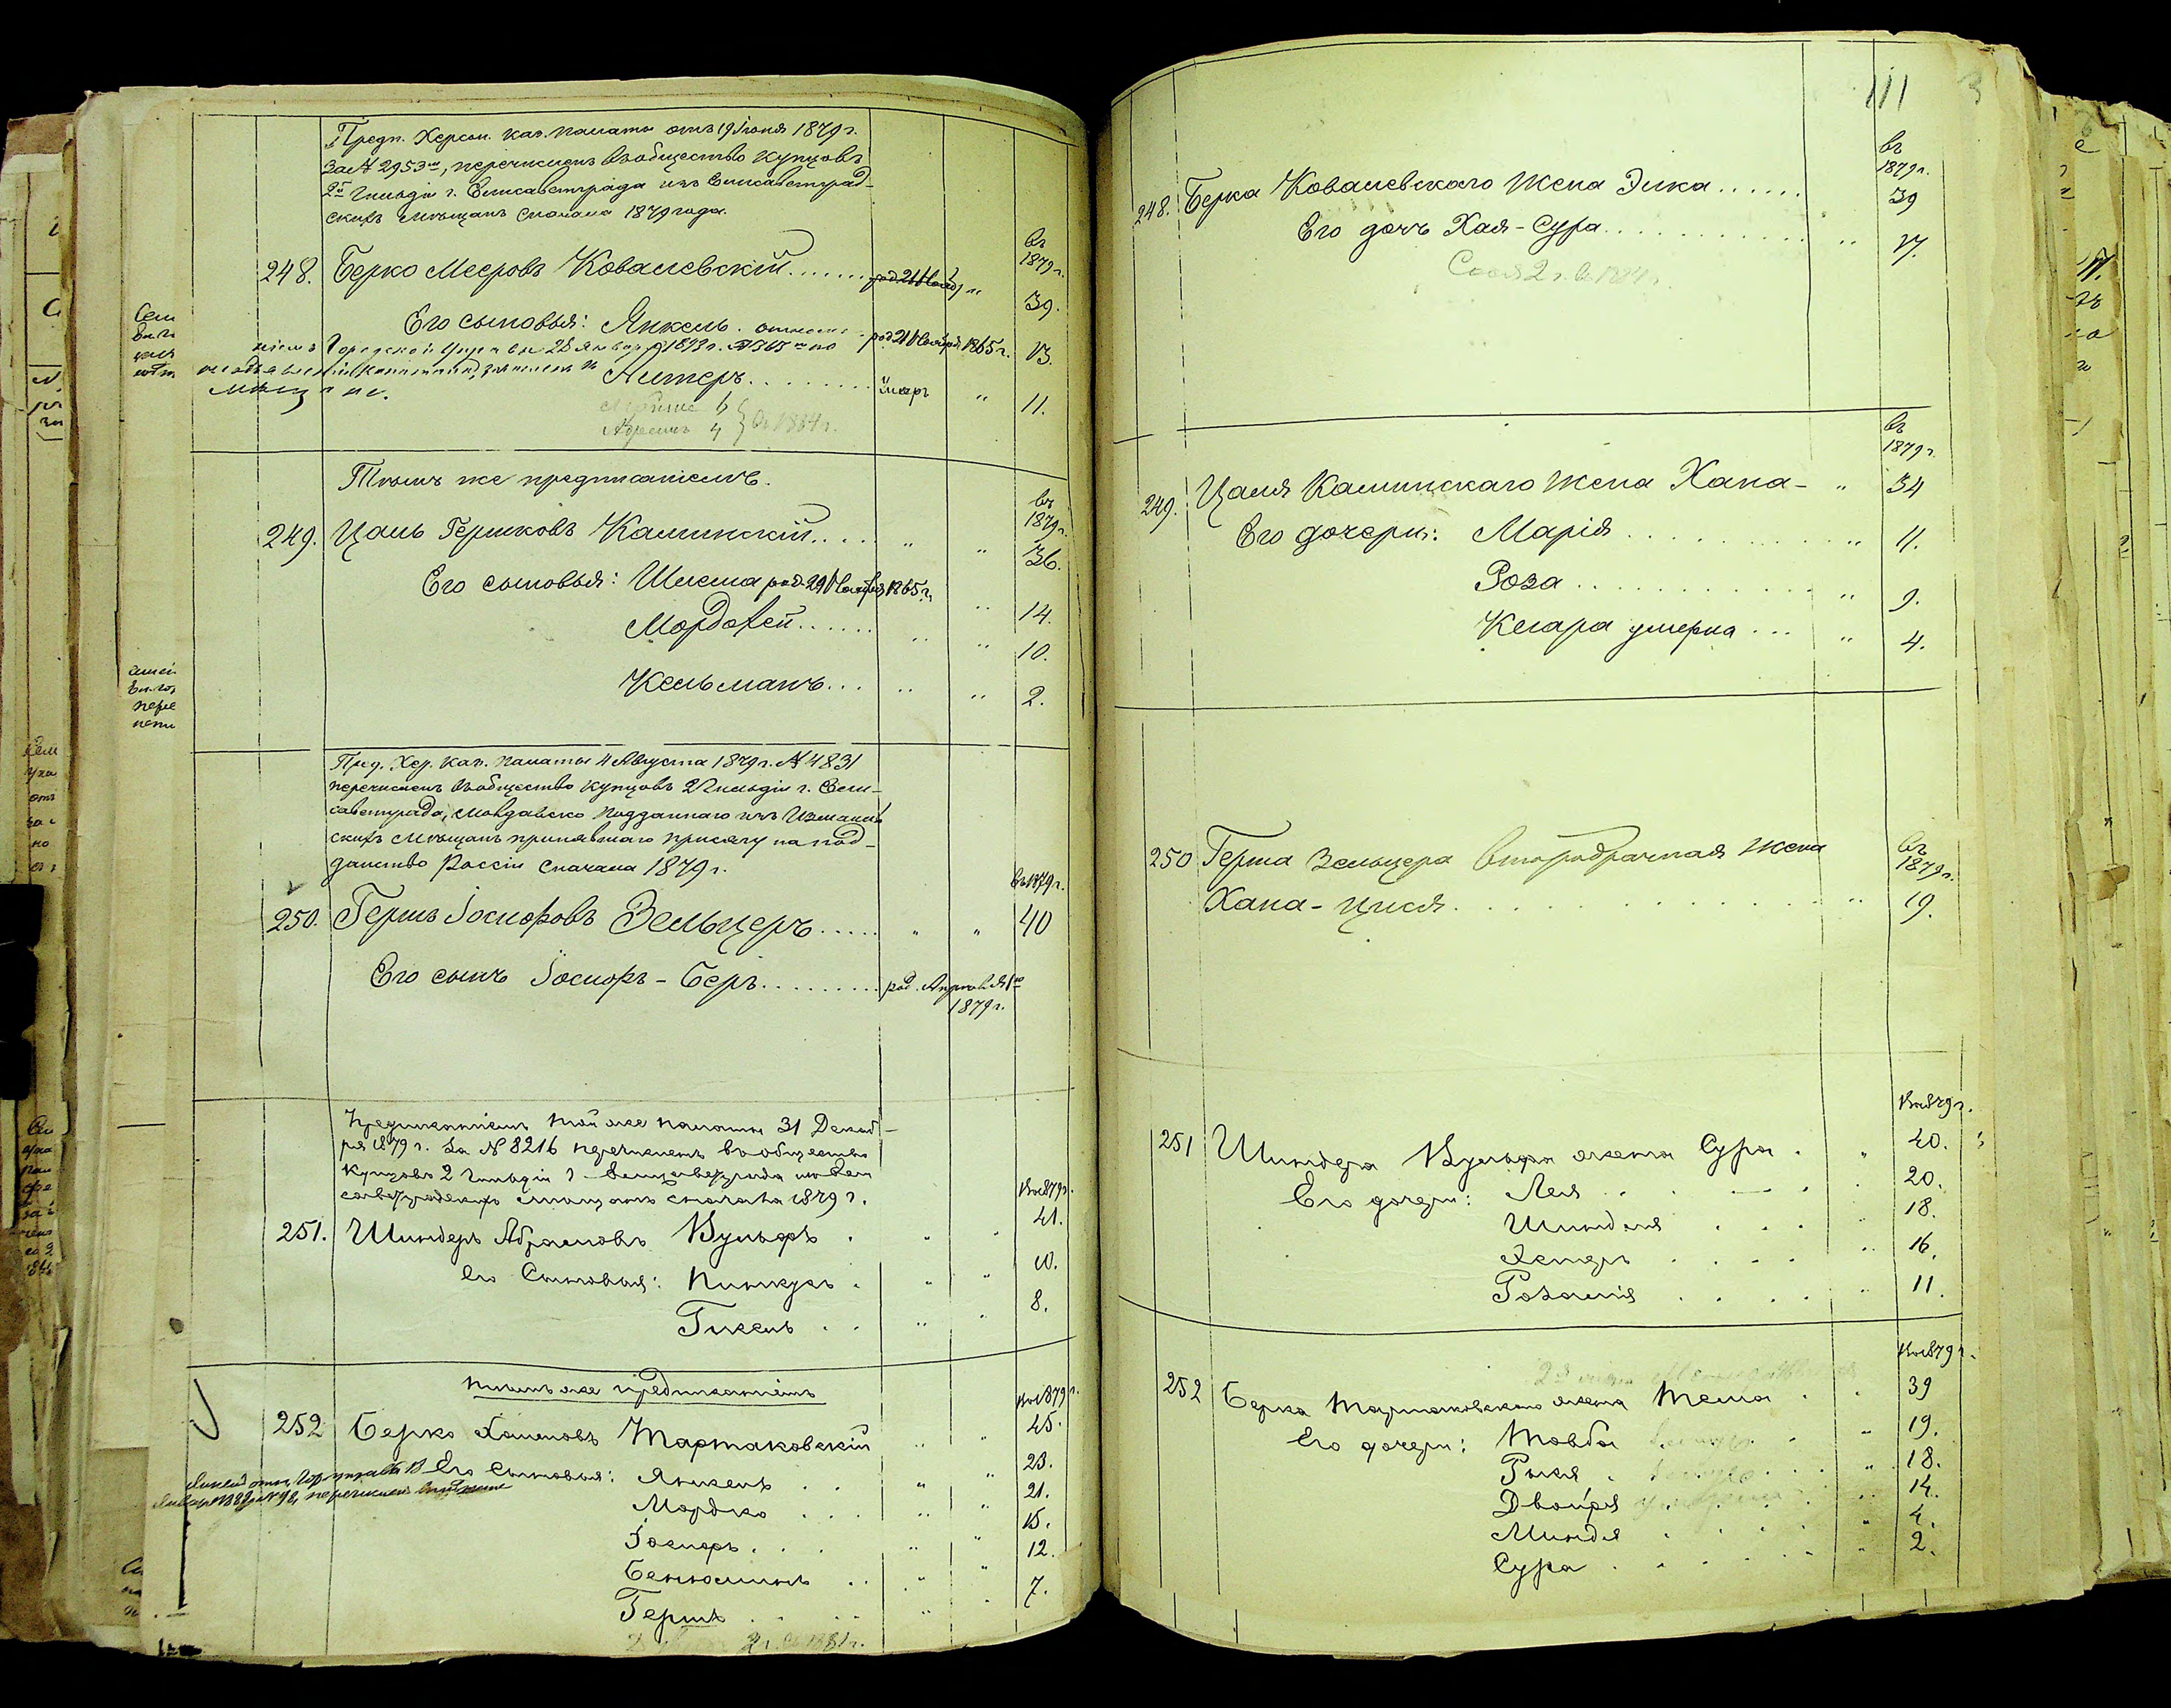 Предп. Херсон. каз. палаты отъ 19 Іюня 1879 г.
за № 2953мъ, перечисленъ въ общество купцовъ
2й гильдіи г. Елисаветграда изъ Елисаветград-
скихъ мѣщанъ сначала 1879 года.
въ
1879 г.
248. Берко Мееровъ Ковалевскій
39.
Его сыновья: Янкель
род. 21 Ноября 1865 г.
13.
Городской Управы 28 Января 1893 г. № 365
Алтеръ
11.
4 въ 1884 г.
Тѣмъ же предписаніемъ.
въ
1879 г.
249. Цаль Гершковъ Калинскій
36.
Его сыновья: Шлема род. 29 Ноября 1865 г.
14.
Мордохей
10.
Кельманъ
2.
Пред. Хер. каз. палаты 4 Августа 1879 г. № 4831
перечисленъ въ общество купцовъ 2 гильдіи г. Ели-
саветграда, Молдавско подданнаго изъ Измаиль
скихъ мѣщанъ принявшаго присягу на под-
данство Россіи сначала 1879 г.
въ 1879 г.
250. Гершъ Іосифовъ Зельцеръ
40
Его сынъ Іосифъ-Беръ
род. Апрѣля 1го
1879 г.
Предписаніемъ той же палаты 31 Декаб-
ря 1879 г. за № 8216 перечисленъ въ общество
купцовъ 2 гильдіи г. Елисаветграда изъ Ели
саветградскихъ мѣщанъ сначала 1879 г.
въ 1879 г.
251. Шиндеръ Абрамовъ Вульфъ
41.
Его сыновья: Пинкусъ
10.
Гисель
8.
Тѣмъ же предписаніемъ
въ 1879 г.
252 Берко Хаимовъ Тартаковскій
45.
Его сыновья: Янкель
23.
Мордко
21.
Іосифъ
15.
Беніоминъ
12.
Гершъ
7.
2 г. въ 1881 г.
111
въ
1879 г.
248. Берка Ковалевскаго жена Элка
39
Его дочь Хая-Сура
17.
2 г. въ 1884 г.
въ
1879 г.
249. Цаля Калинскаго жена Хана
34
Его дочери: Марія
11.
Роза
9.
Клара умерла
4.
въ
1879 г.
250 Герша Зельцера второбрачная жена
Хана-Цися
19.
въ 1879 г.
251 Шиндера Вульфа жена Сура
40.
Его дочери: Лея
20.
Шиндля
18.
16.
Розалія
11.
въ 1879 г.
252 Берка Тартаковскаго жена Тема
39
Его дочери: Товба
19.
Рыся
18.
Двойра
14.
Миндя
4.
Сура
2.